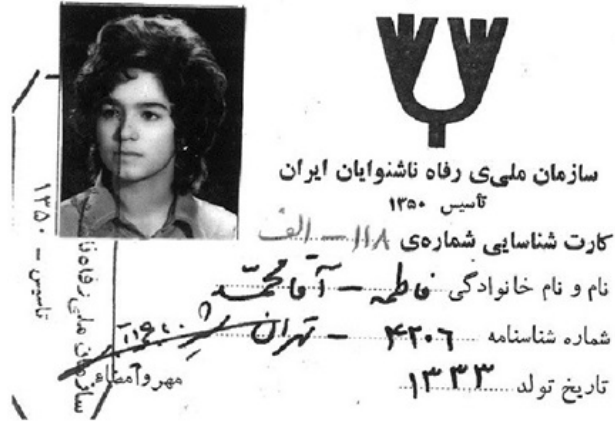 سازمان ملی‌ی رفاه ناشنوایان ایران
تأسیس ۱۳۵۰
کارت شناسایی شماره‌ی ۱۱۸ – الف
نام و نام خانوادگی فاطمه – آقا محمد
شماره شناسنامه ۴۲۰۶ – تهران
تاریخ تولد ۱۳۳۳
مهر و امضاء
سازمان ملی رفاه نا
تاسیس – ۱۳۵۰